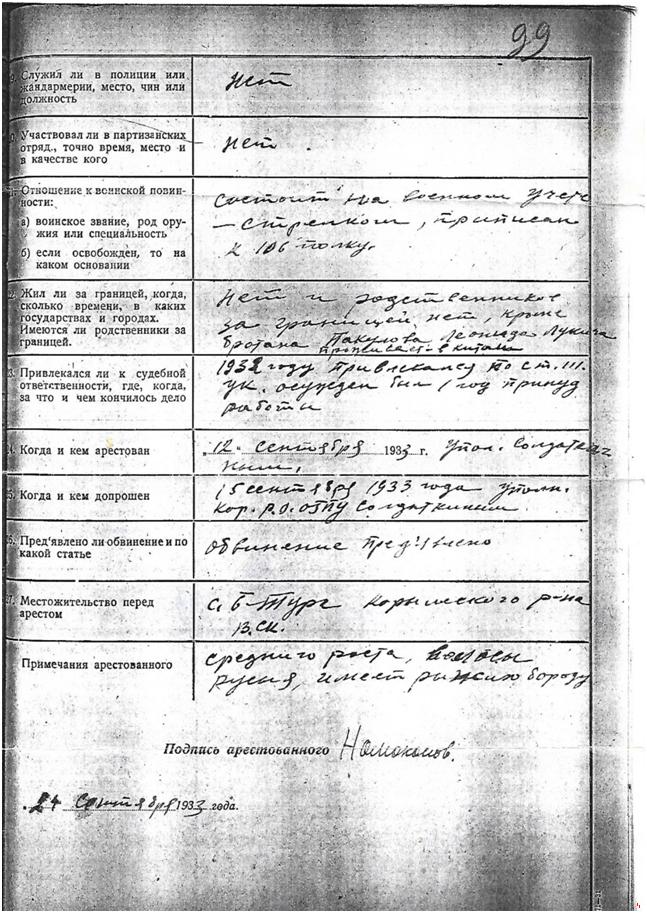 99
9. Служил ли в полиции или
жандармерии, место, чин или
должность
нет
Участвовал ли в партизанских
отряд., точно время, место и
в качестве кого
нет.
Отношение к воинской повин-
ности:
а) воинское звание, род ору-
жия или специальность
б) если освобожден, то на
каком основании
состоит на военном учете
– стрелком, приписан
к 106 полку.
Жил ли за границей, когда,
сколько времени, в каких
государствах и городах.
Имеются ли родственники за
границей.
Нет и родственников
за границей нет, кроме
братана Леонида Лукича
проживает в китае
Привлекался ли к судебной
ответственности, где, когда,
за что и чем кончилось дело
1932 году привлекался по ст. 111
ук. осужден был 1 год принуд
работы
Когда и кем арестован
„12" сентября 1933 г. упол. Солдаткиным.
Когда и кем допрошен
15 сентября 1933 года уполн.
Кор. р.о. ОГПУ Солдаткиным
Пред'явлено ли обвинение и по
какой статье
обвинение пред'явлено
Местожительство перед
арестом
с. Б-Тура Карымского р-на
В.СК.
Примечания арестованного
среднего роста, волосы
русыя, имеет рыжую бороду
Подпись арестованного Номоконов.
24 сентября 1933 года.